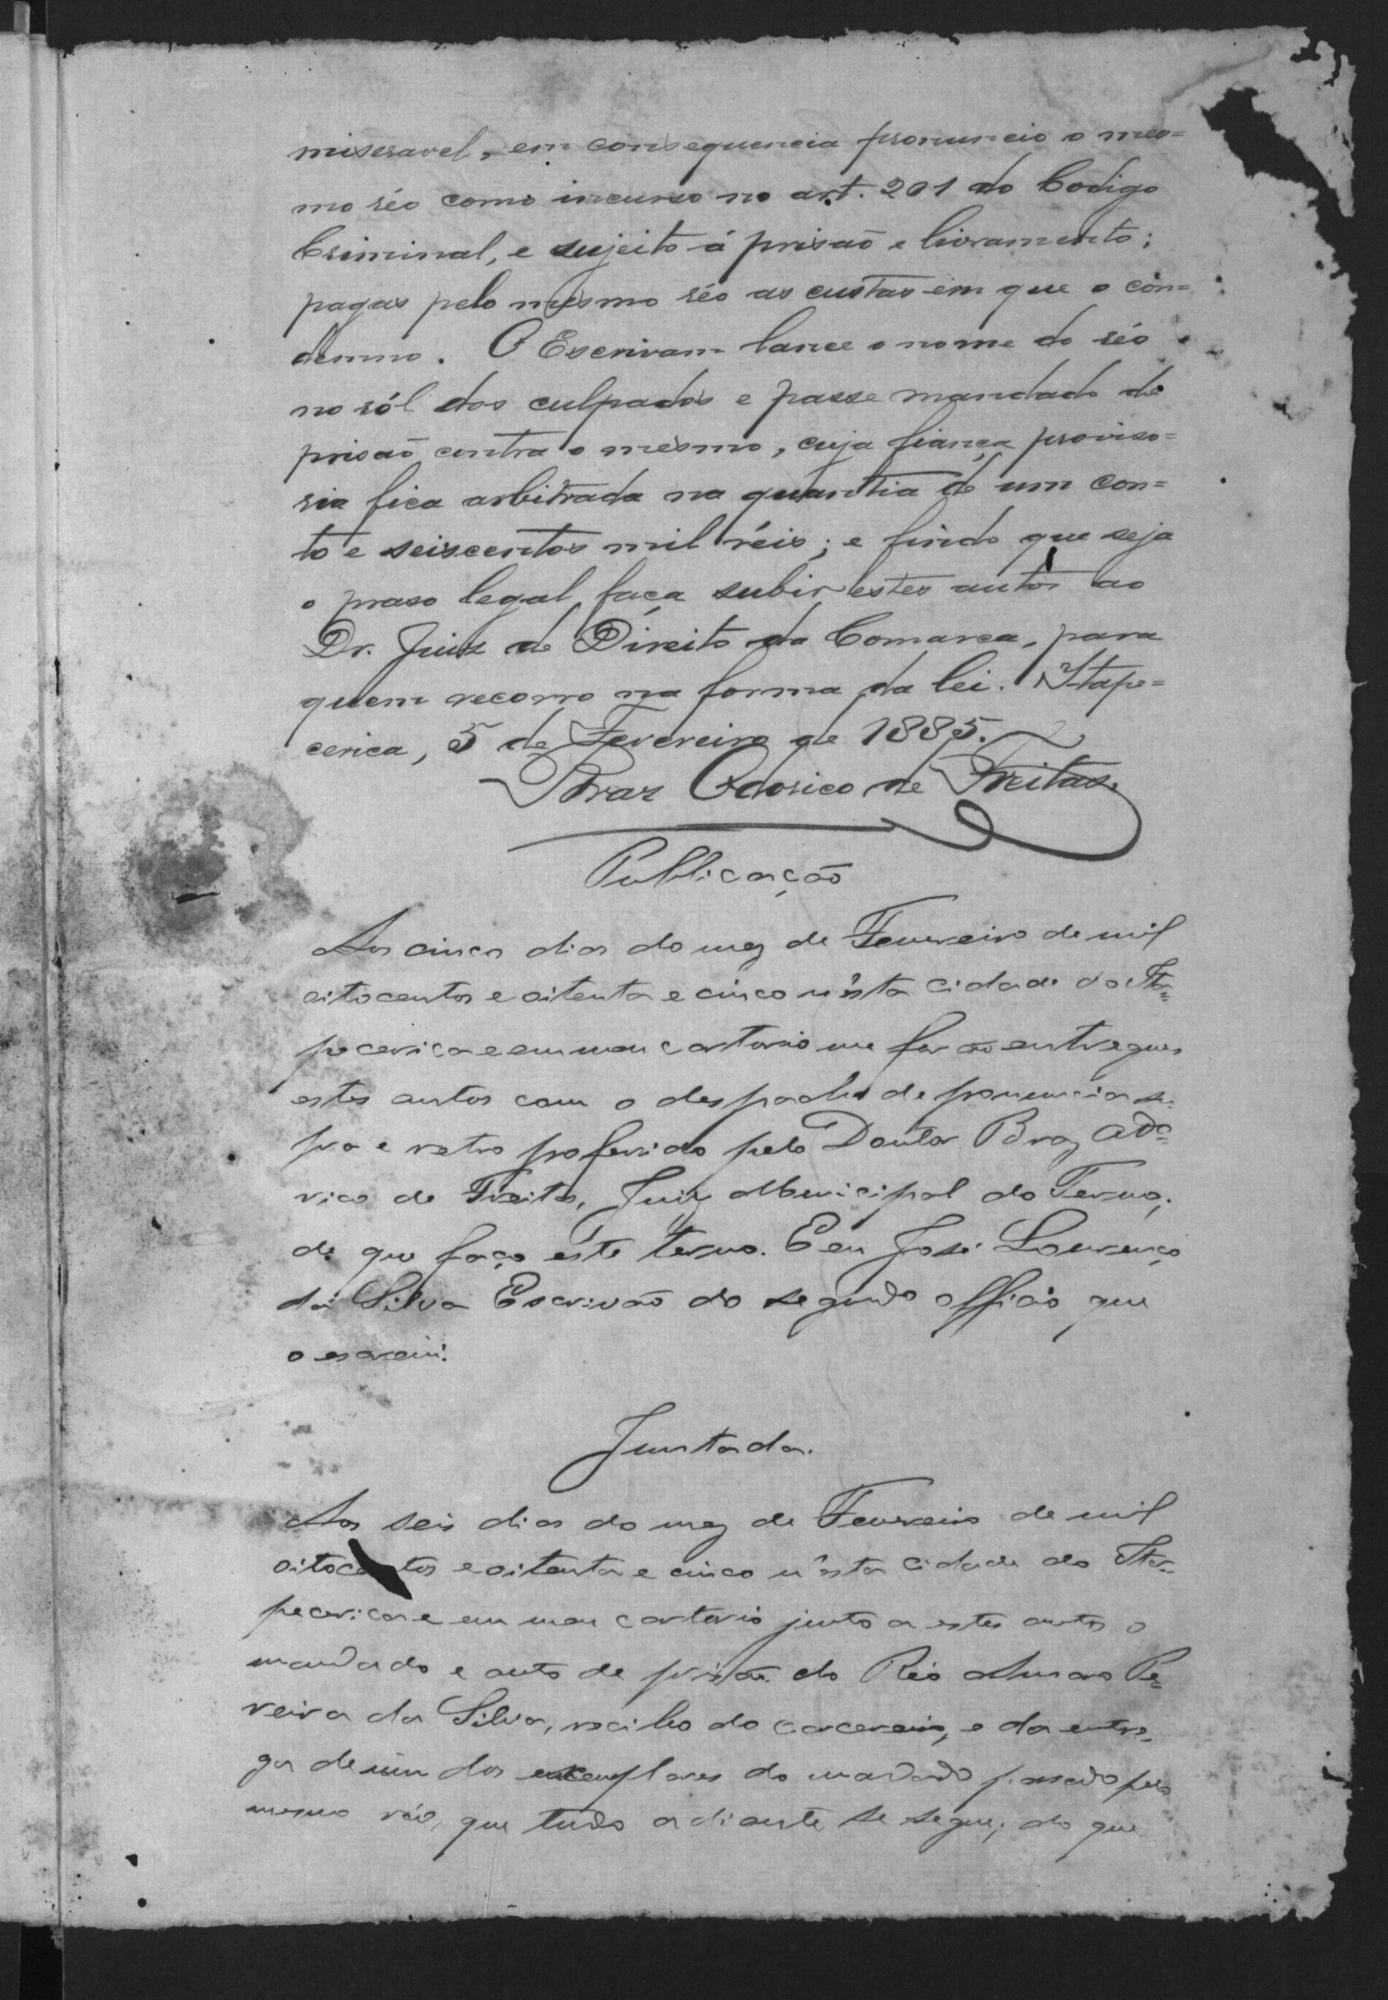 miseravel, em consequencia pronuncio o mes=
mo réo como incurso no art. 201 do Codigo
Criminal, e sujeito á prisaõ e livramento;
pagas pelo mesmo réo as custas em que o con=
demno. O Escrivam lance o nome do réo
no ról dos culpados e passe mandado de
prisaõ contra o mesmo, cuja fiança proviso=
ria fica arbitrada na quantia de um con=
to e seiscentos mil réis; e findo que seja
o praso legal, faça subir estes autos ao
Dr. Juiz de Direito da Comarca, para
quem recorro na forma da lei. Itape=
cerica, 5 de Fevereiro de 1885.
Braz Odorico de Freitas.
Publicação
Aos cinco dias do mez de Fevereiro de mil
oitocentos e oitenta e cinco n'esta cidade do Ita=
pecerica e em meu cartorio me forão entregues
estes autos com o despacho de pronuncia su=
pra e retro proferido pelo Doutor Braz Odo=
rico de Freitas, Juiz Municipal do Termo;
de que faço este termo. Eeu José Lourenço
da Silva Escrivão do segundo officio que
o escrevi.
Juntada.
Aos seis dias do mez de Fevereiro de mil
oitocentos e oitenta e cinco n'esta cidade do Ita=
pecerica e em meu cartorio junto a estes autos o
mandado e auto de prisão do Réo Pe=
reira da Silva, recibo do carcereiro, e da entre=
ga de um dos exemplares do mandado passado pelo
mesmo réo, que tudo adiante se segue; do que